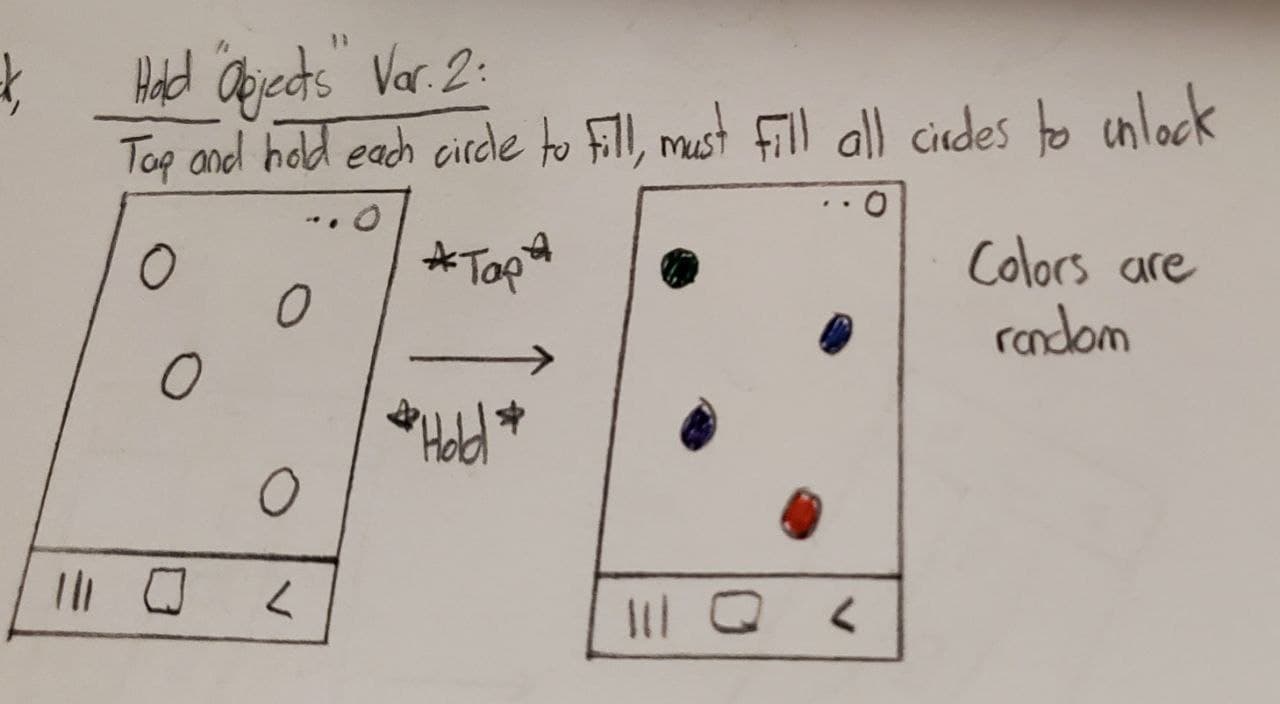 Hold "Objects" Var. 2:
Tap and hold each circle to fill, must fill all circles to unlock
*Tap*
*Hold*
Colors are
random